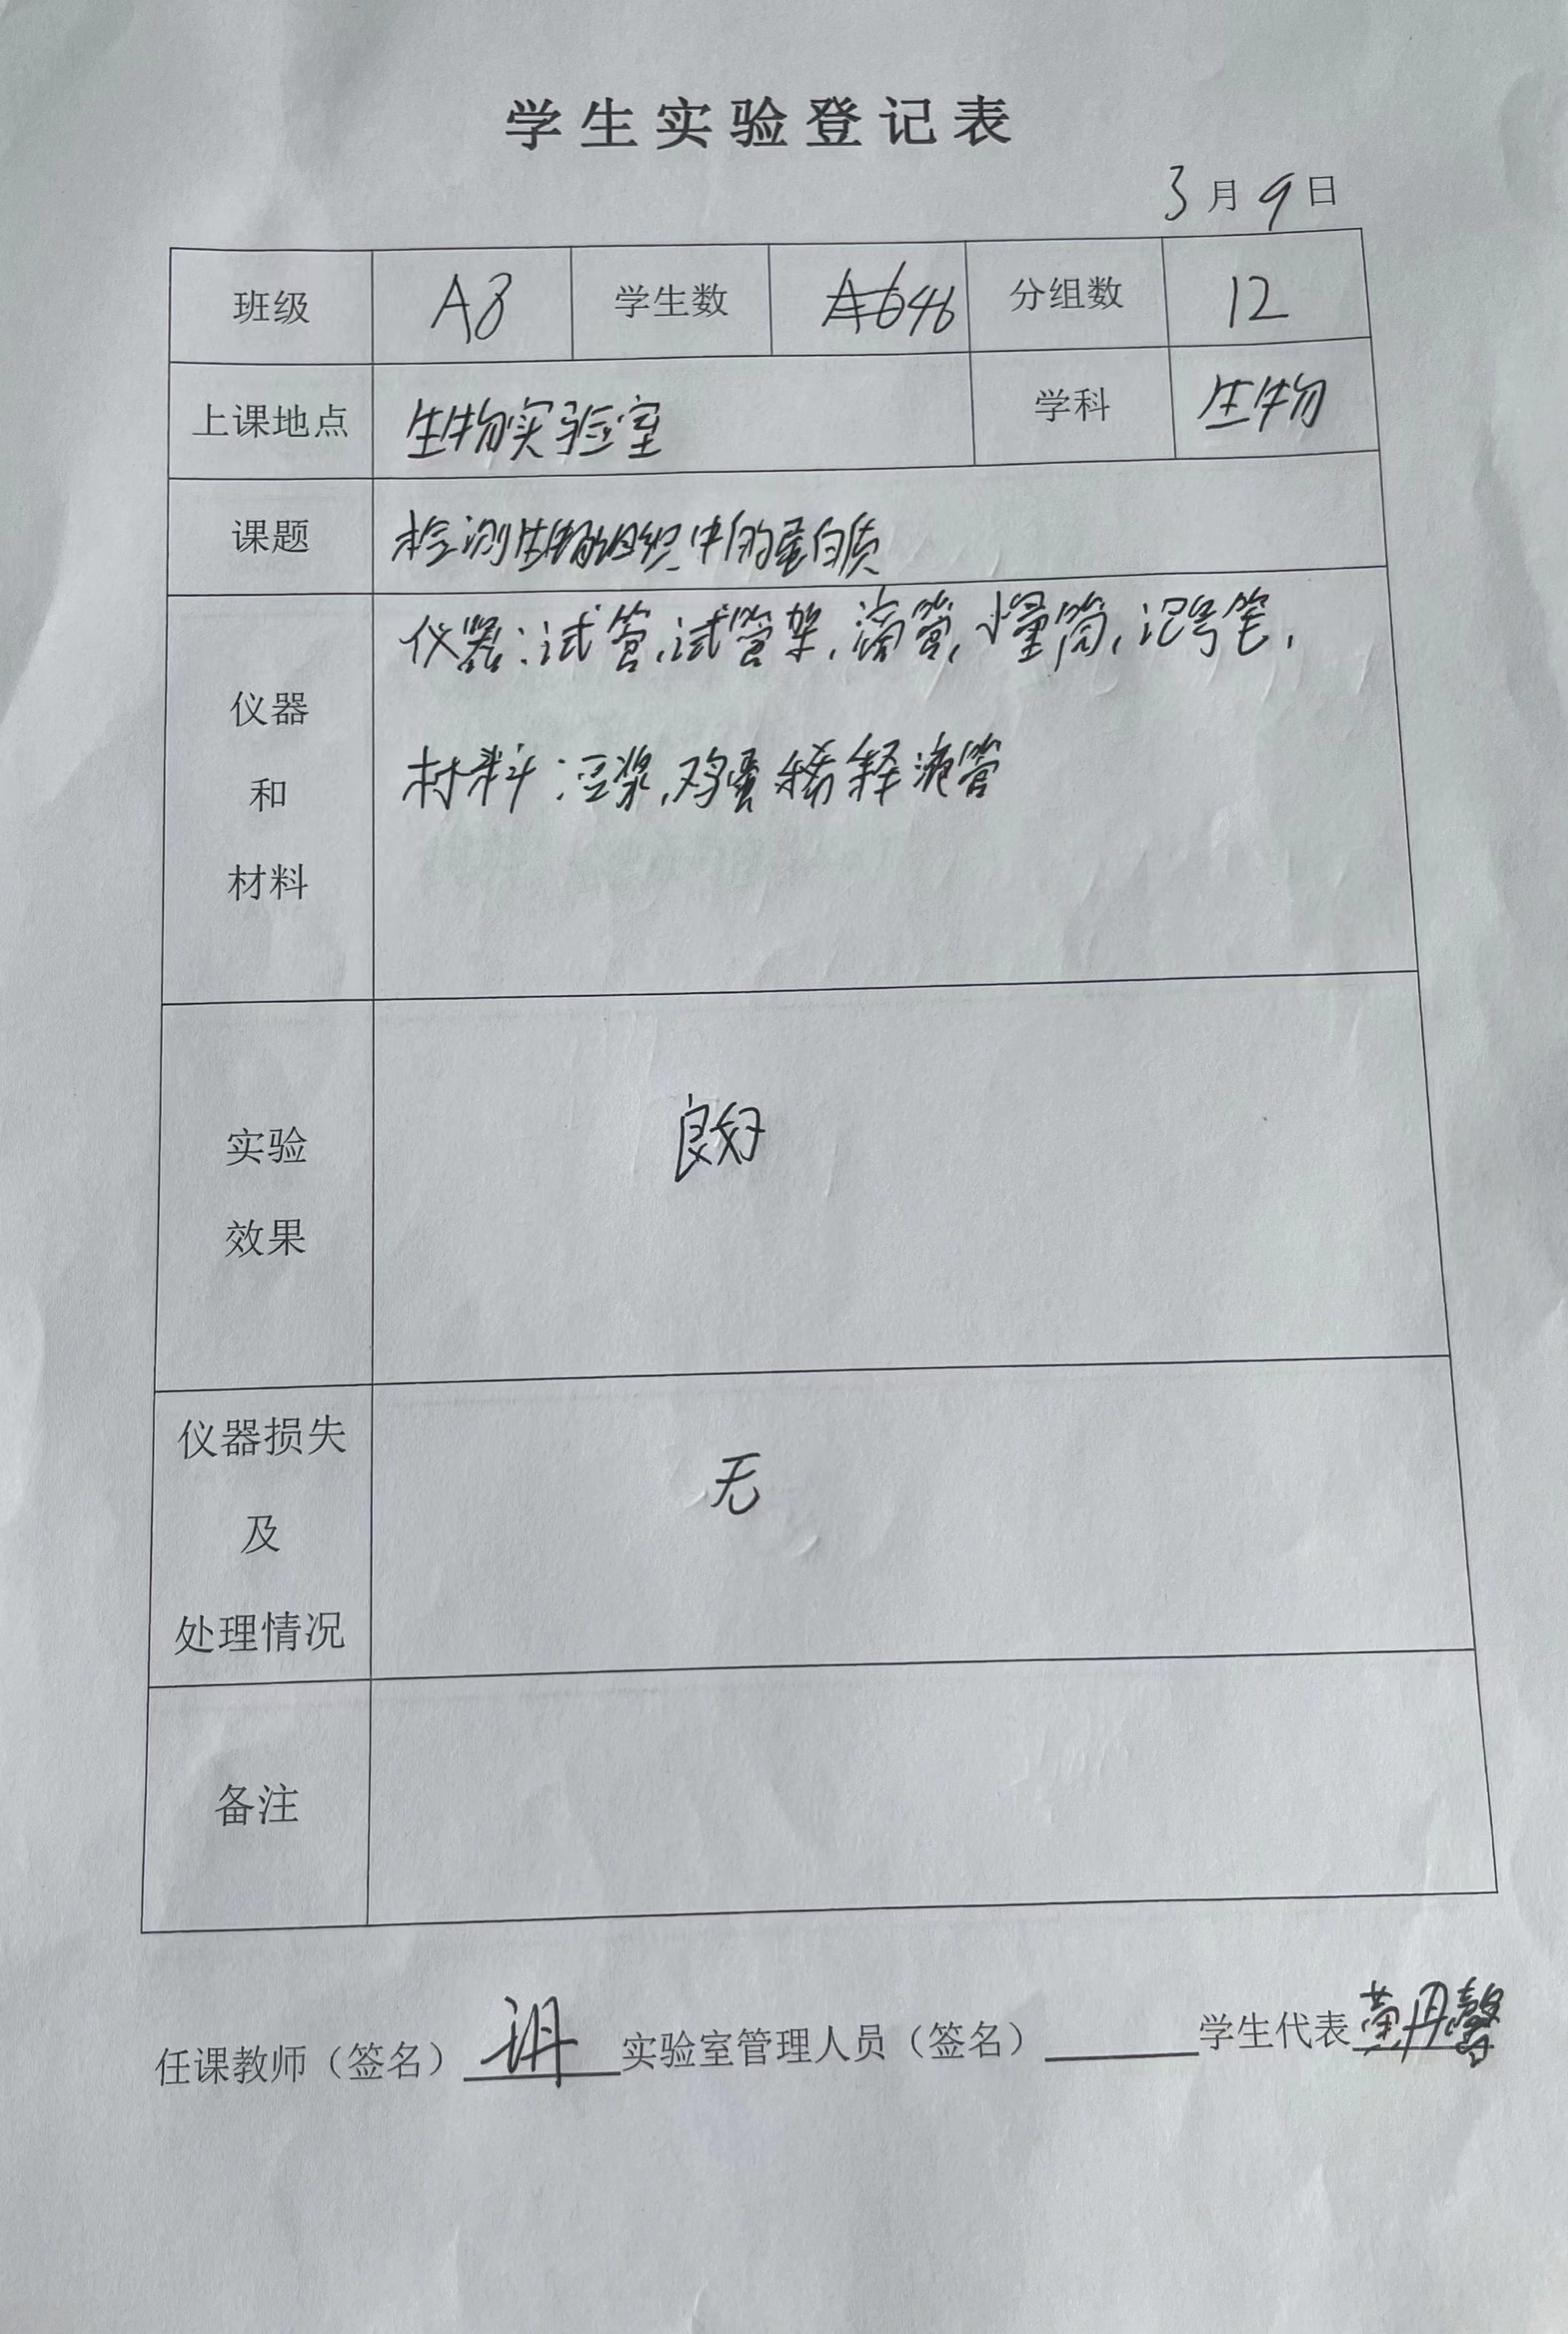 学生实验登记表
3月9日
班级 A8 学生数 46 分组数 12
上课地点 生物实验室 学科 生物
课题 检测生物组织中的蛋白质
仪器
和
材料
仪器:试管,试管架,滴管,小量筒,记号笔,
材料:豆浆,鸡蛋稀释液管
实验
效果
良好
仪器损失
及
处理情况
无
备注
任课教师(签名) 实验室管理人员(签名) 学生代表